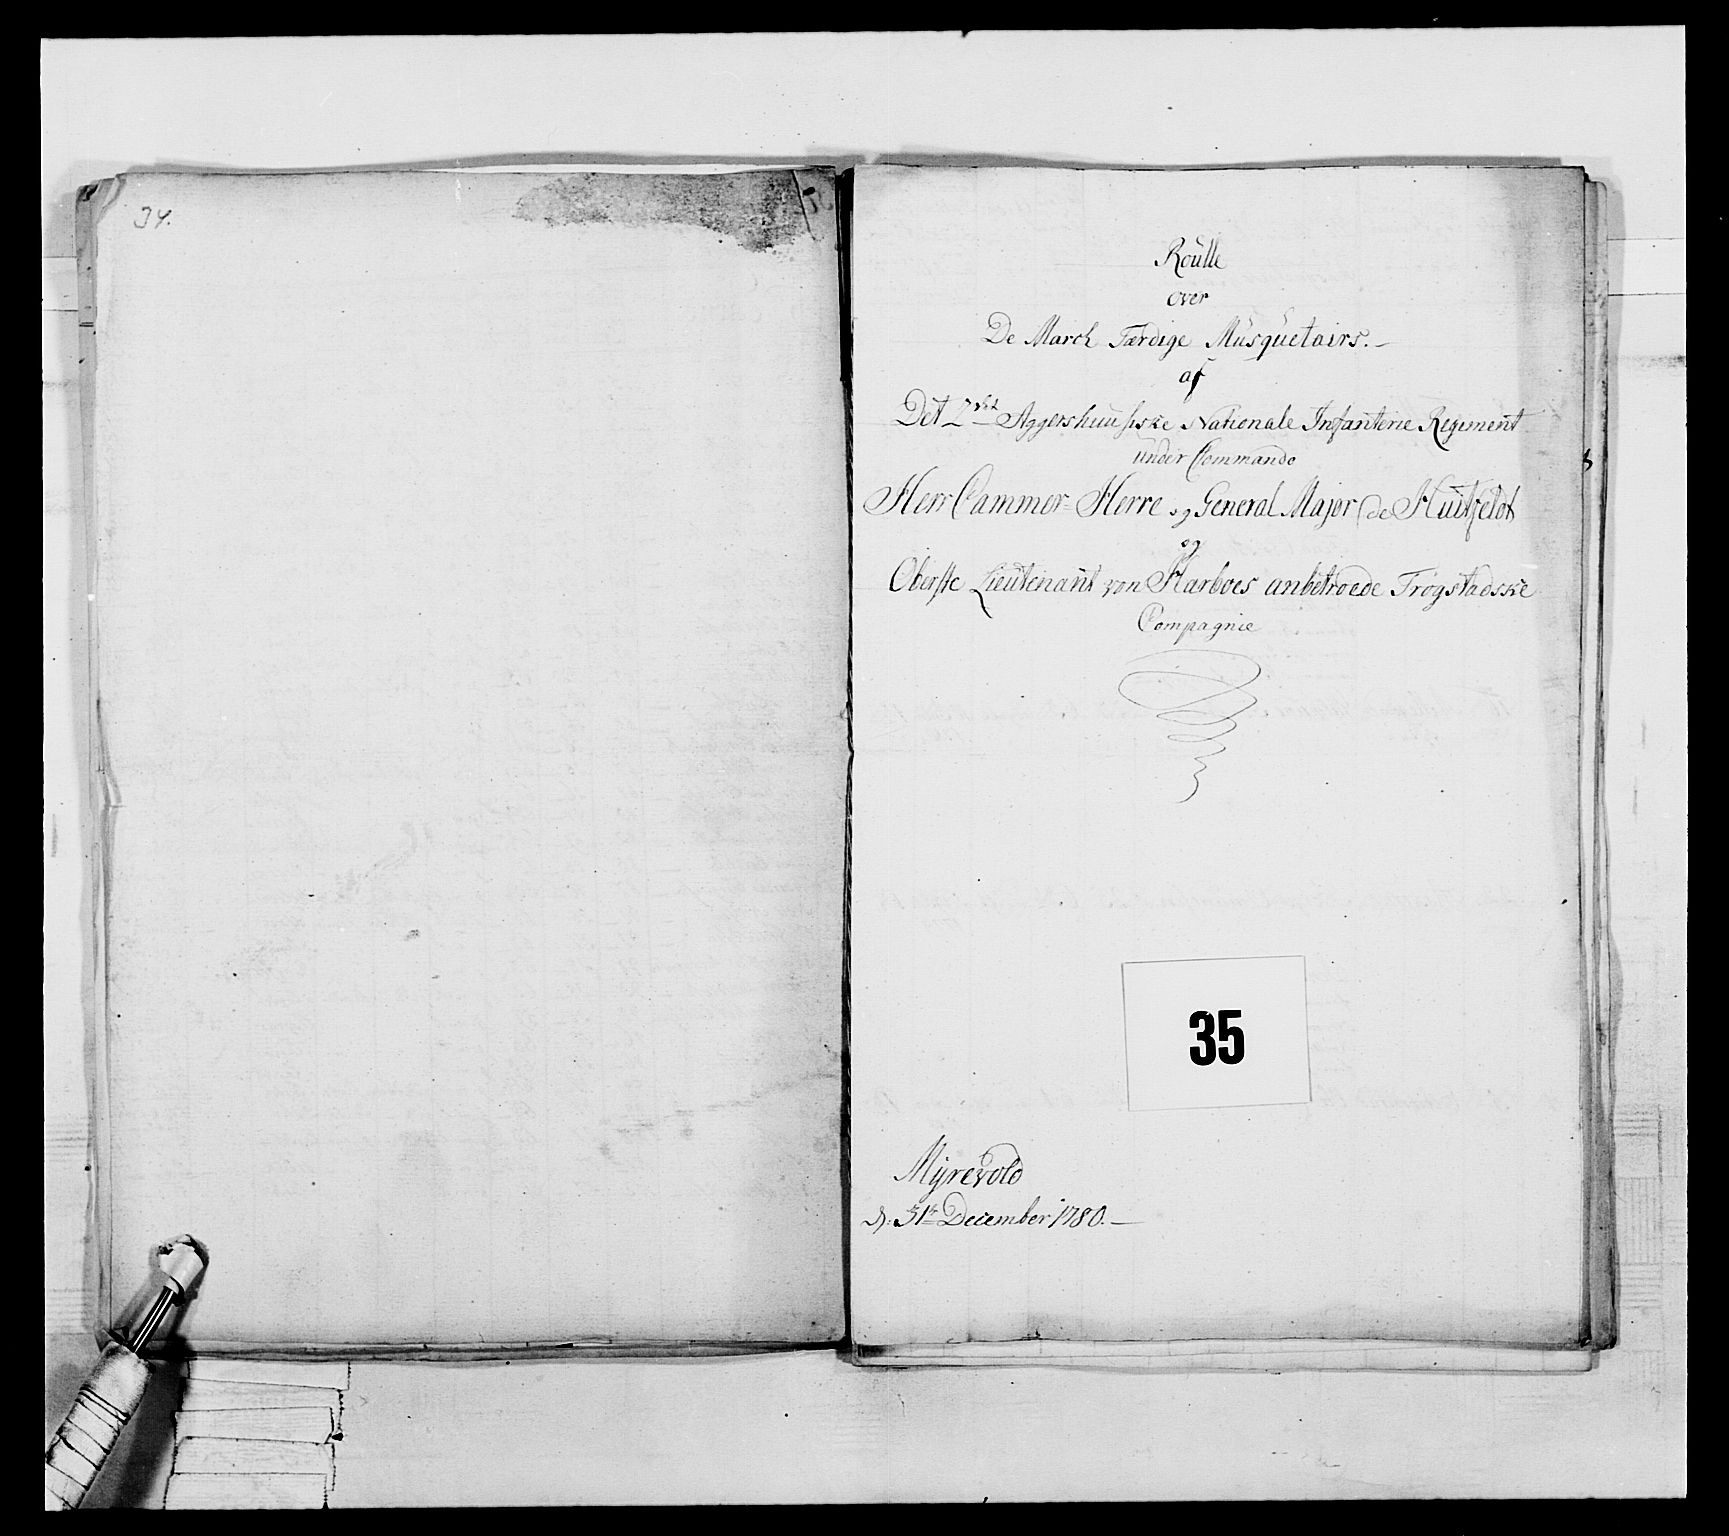 34.
Roulle
over
De March Færdige Musquetairs.
af
Det 2det Aggershuusiske Nationale Infanterie Regiment
under Commando
Herr Cammer-Herre og General Major de Huitfeldt
og
Oberste Lieutenant von Harboes anbetroede Trøgstadske
Compagnie
35
Myrevold
d: 31te December 1780.